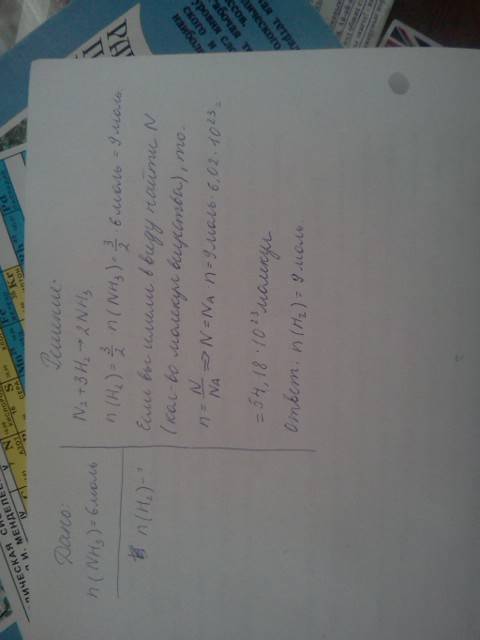 Дано:
n(NH₃)=6моль
n(H₂)-?
Решение:
N₂+3H₂→2NH₃
n(H₂)=3/2 n(NH₃)=3/2·6моль=9моль.
Если вы имели ввиду найти N
(кол-во молекул вещества), то.
n=N/Na ⇒ N=Na n=9моль·6,02·10²³=
=54,18·10²³молекул
Ответ: n(H₂)=9моль.